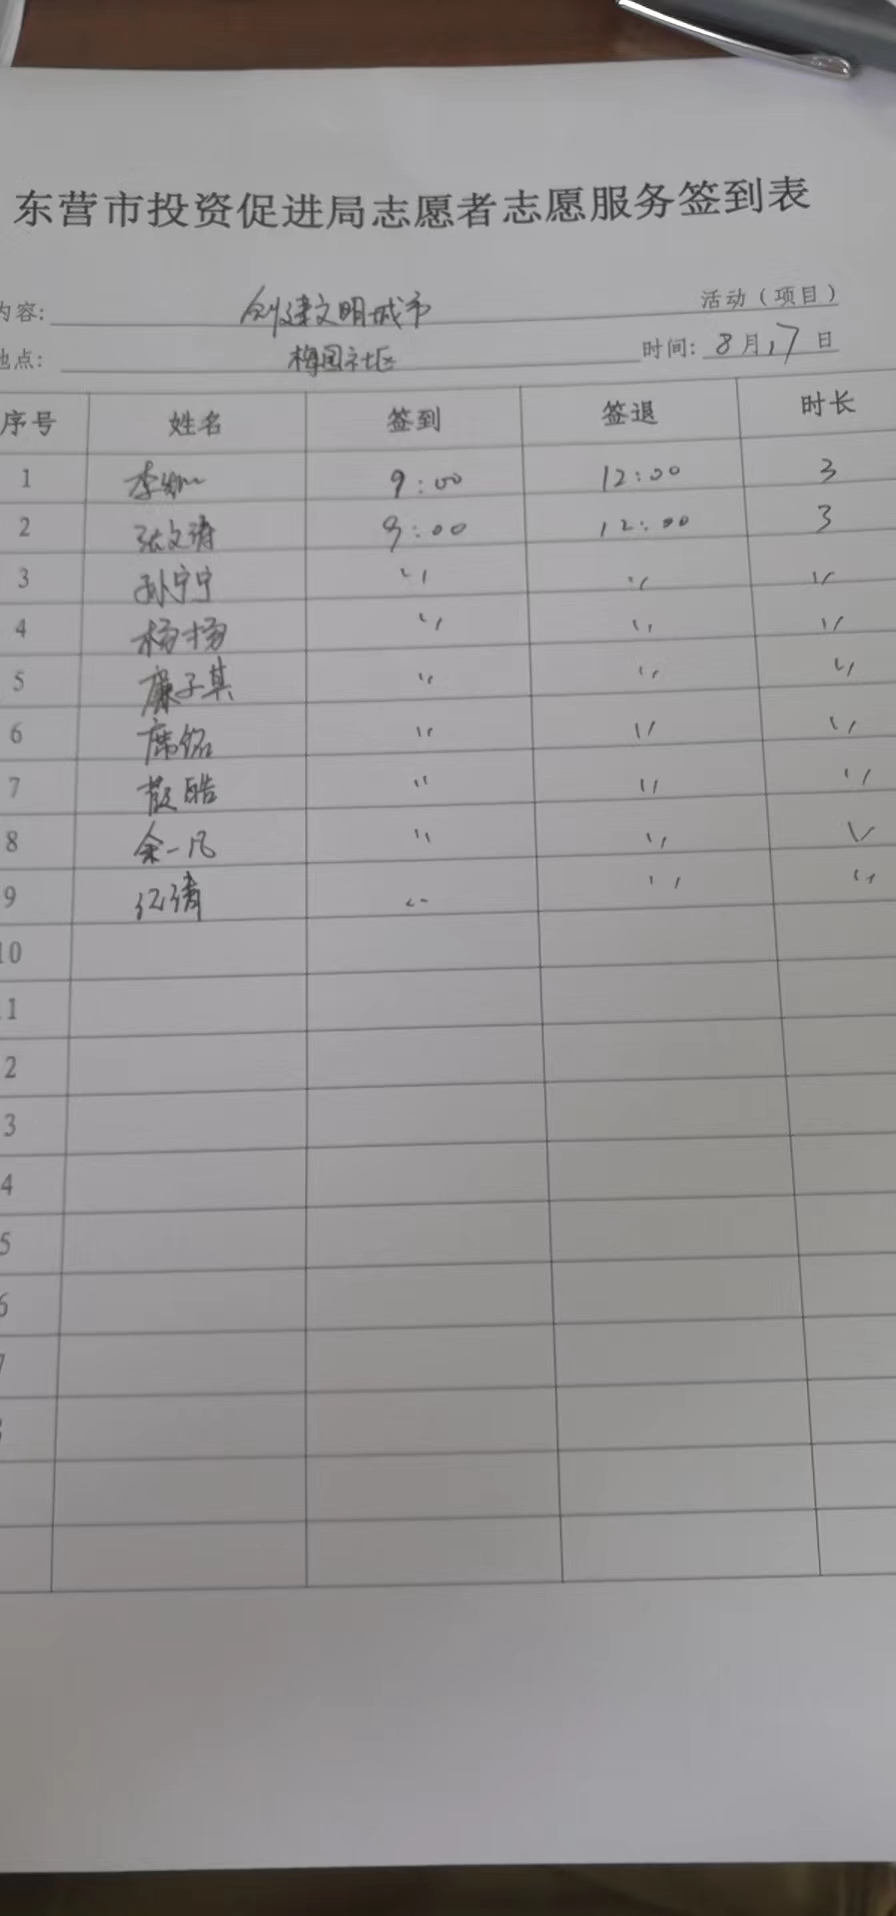 东营市投资促进局志愿者志愿服务签到表
内容: 创建文明城市 活动（项目）
地点: 梅园社区 时间: 8月17日
序号 姓名 签到 签退 时长
1 李 9:00 12:00 3
2 张文涛 9:00 12:00 3
3 孙宁宁 〃 〃 〃
4 杨杨 〃 〃 〃
5 廉子其 〃 〃 〃
6 席铭 〃 〃 〃
7 皓 〃 〃 〃
8 余一凡 〃 〃 〃
9 〃 〃 〃
10
1
2
3
4
5
6
7